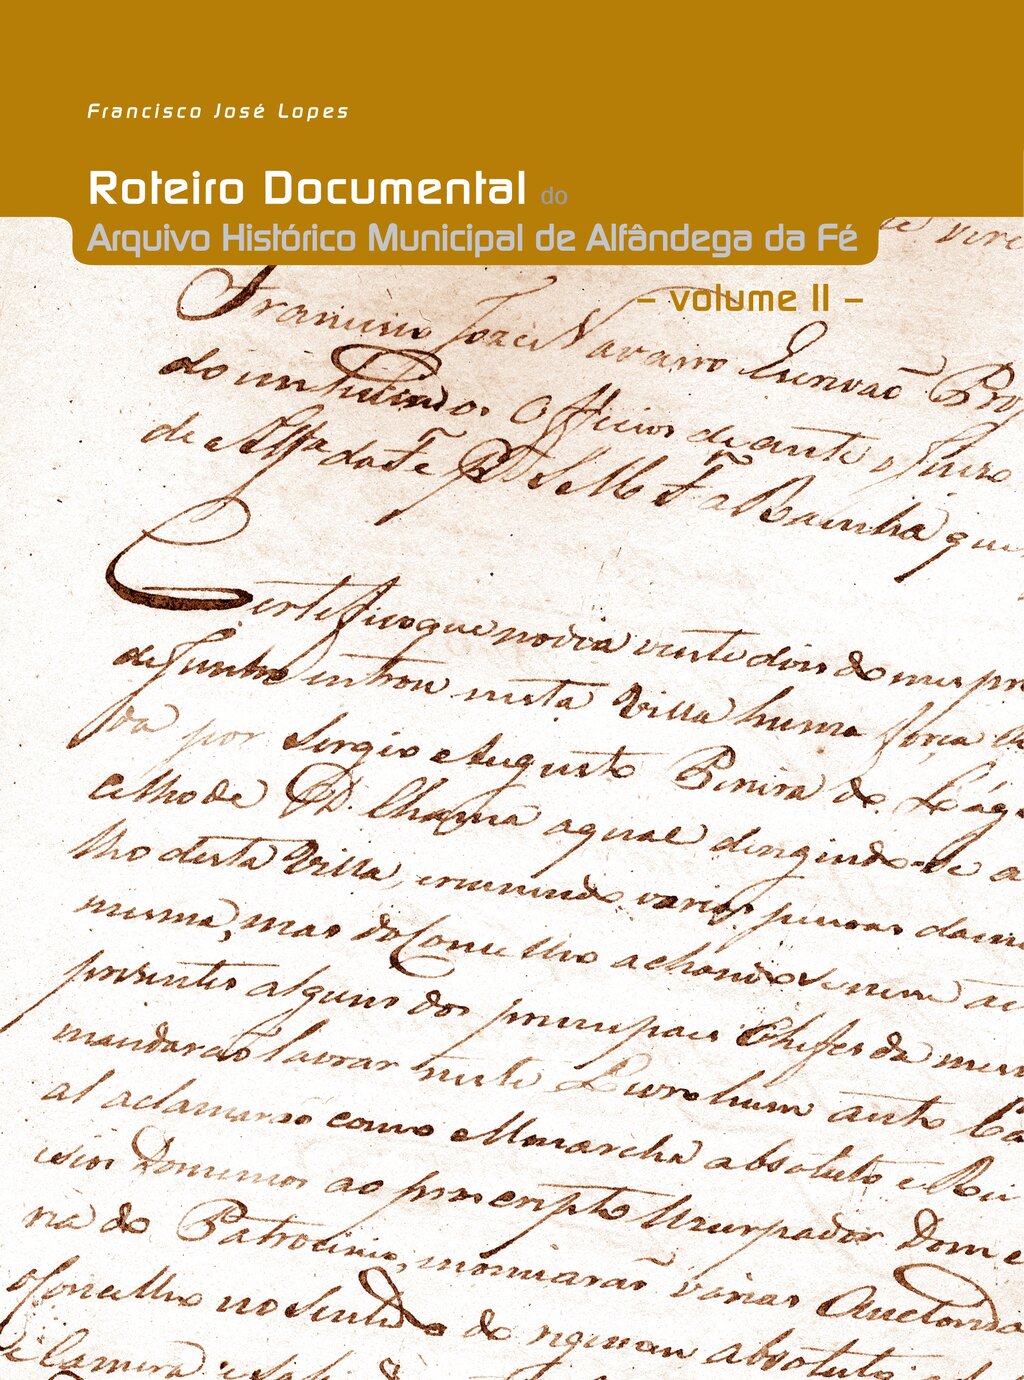 Francisco José Lopes
Roteiro Documental do
Arquivo Histórico Municipal de Alfândega da Fé
– volume II –
Francisco José Navarro Escrivão
do Officios de ante o Juizo
de Alfa da Fe S M F a Rainha que
Certifico que no dia vinte dois do mes
de Junho entrou nesta Villa huma força
da por Sergio Augusto Pereira de
celho de Chama a qual dirigindo-se a
lho desta Villa, varias
mesma, mas do Concelho achando
presentes alguns dos principaes Chefes da
mandarão lavrar neste Livro hum auto
al aclamarão como Monarcha absoluto e Rei
ao proscripto Uzurpador Dom
ria do Patrocinio, varias
Concelho no sentido de absoluto
e Camera